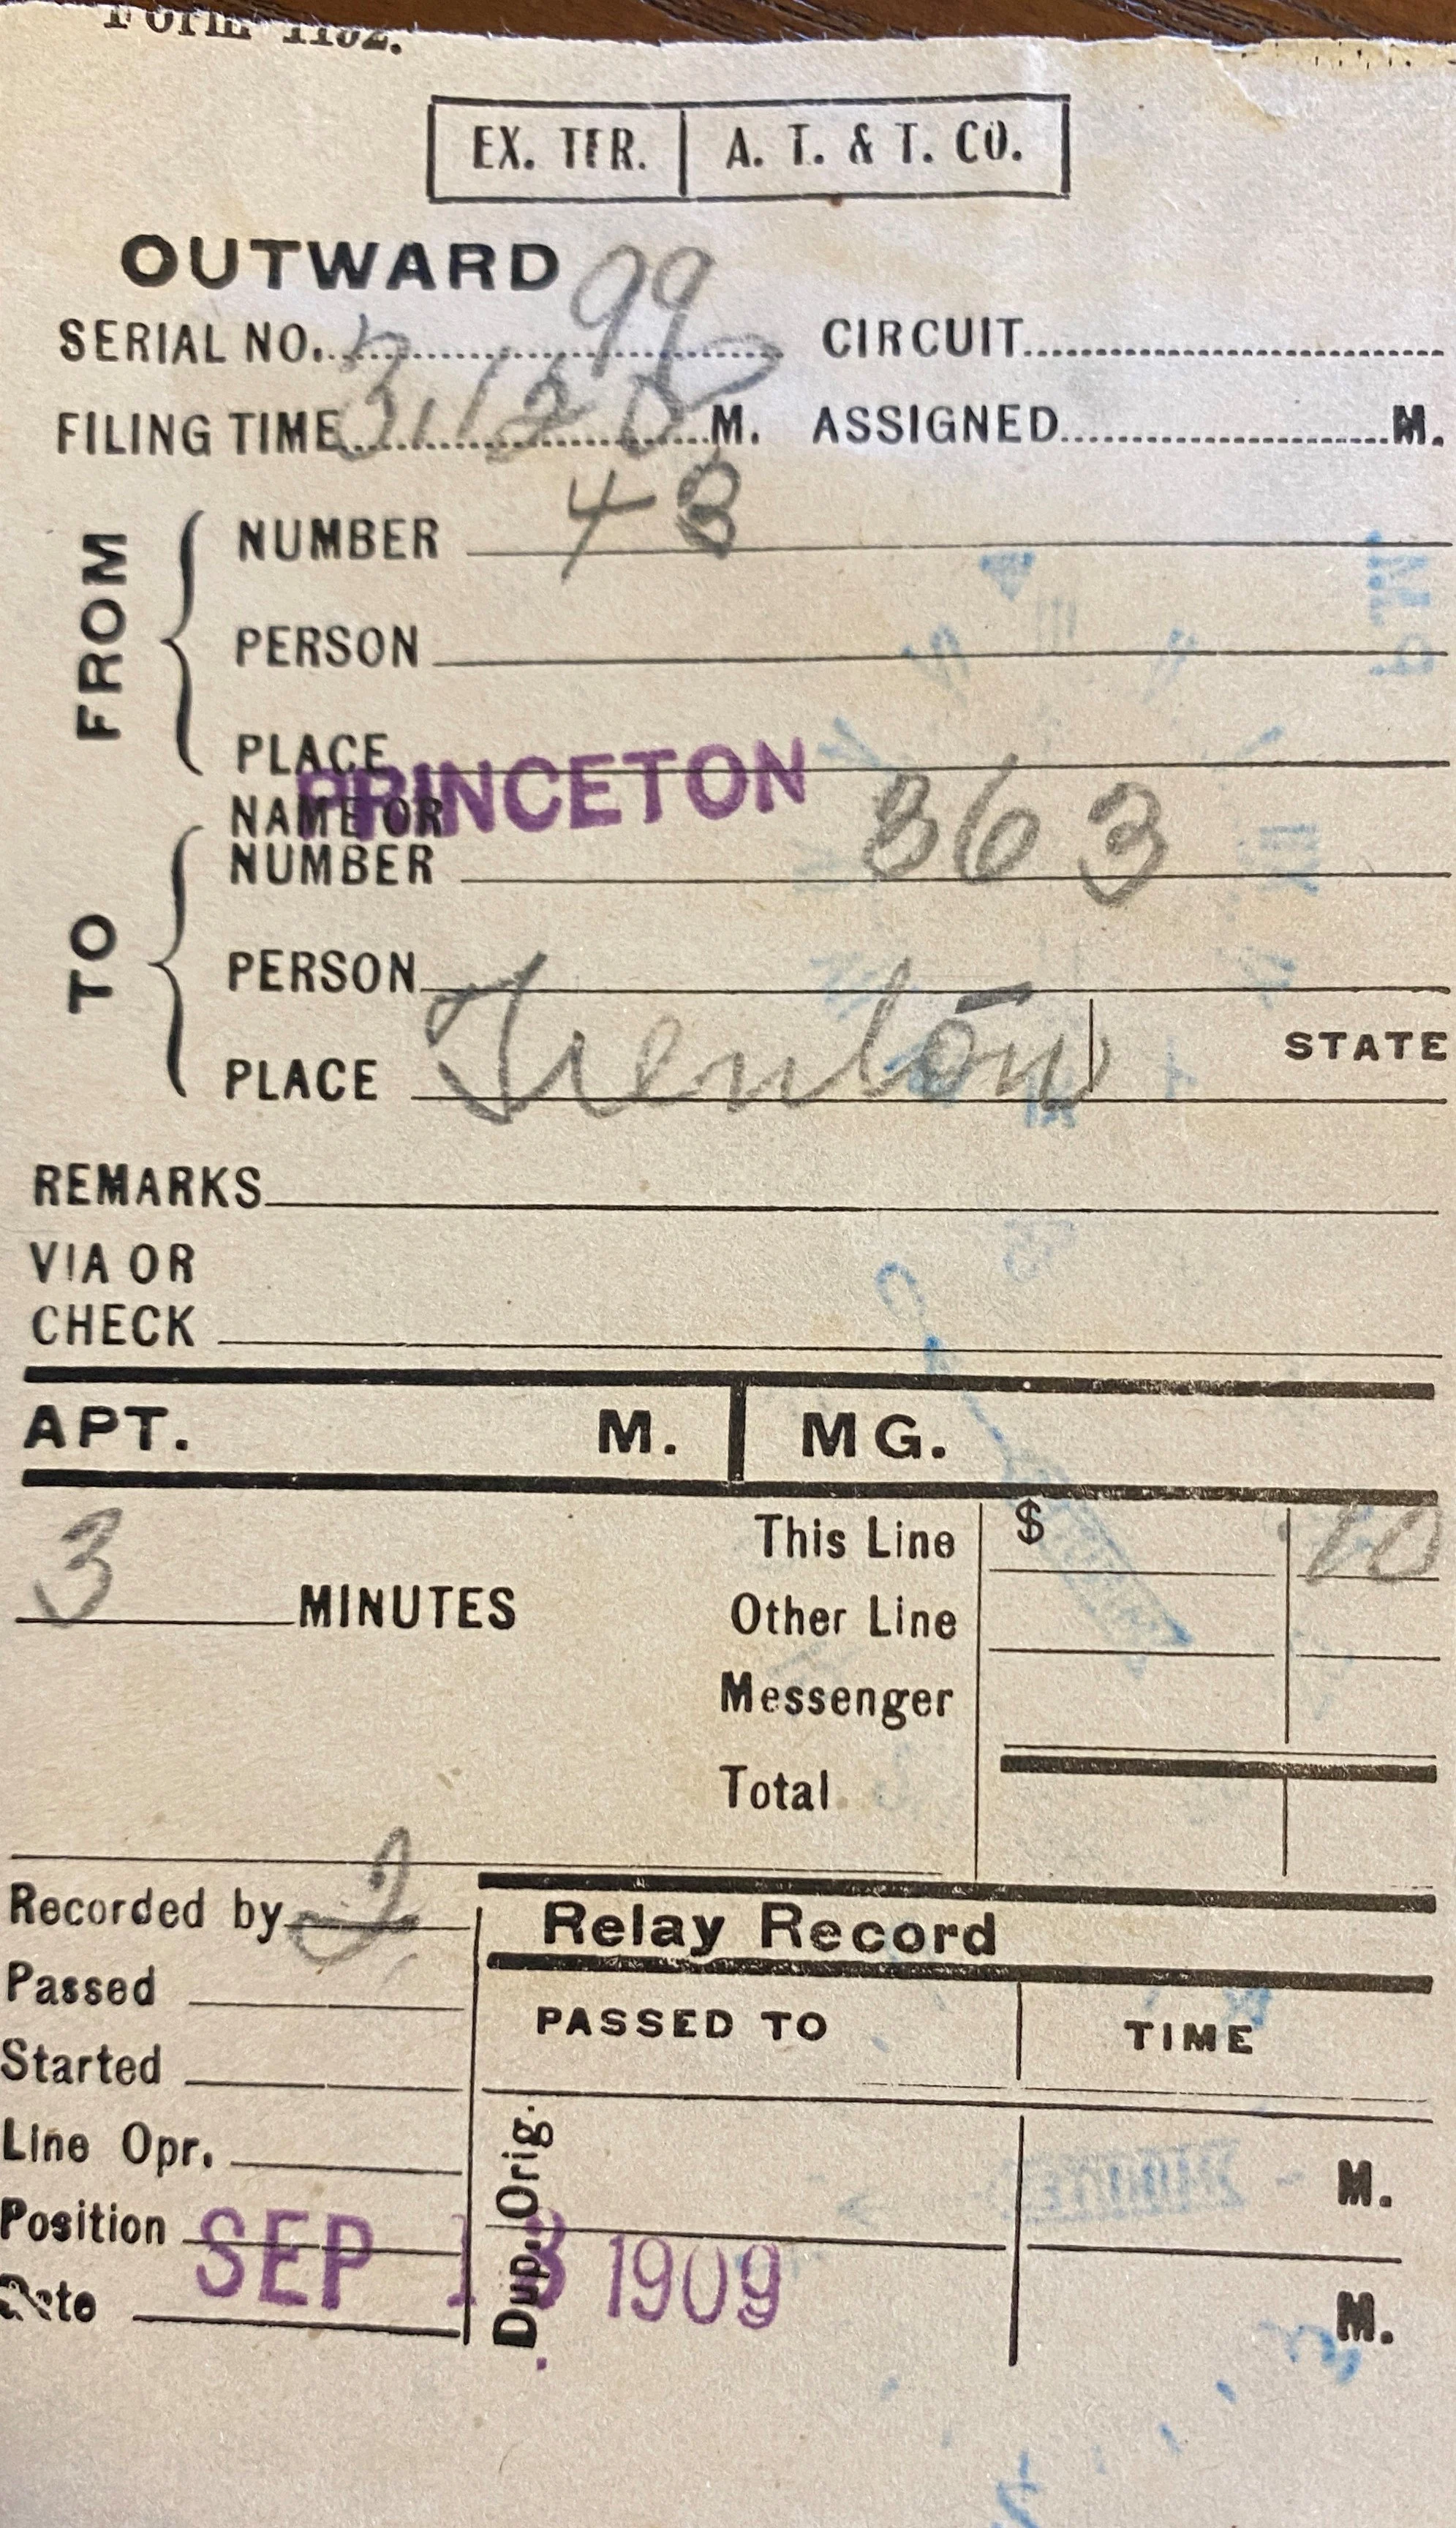 Form 1152.
EX. TER. A. T. & T. CO.
OUTWARD 99
SERIAL NO. CIRCUIT
FILING TIME M. ASSIGNED M.
FROM
NUMBER 48
PERSON
PLACE PRINCETON
TO
NAME OR
NUMBER 363
PERSON
PLACE Trenton STATE
REMARKS
VIA OR
CHECK
APT. M. MG.
3 MINUTES
This Line $ .10
Other Line
Messenger
Total
Recorded by 2
Passed
Started
Line Opr.
Position
Date SEP 13 1909
Relay Record
PASSED TO TIME
Orig. M.
Dup. M.